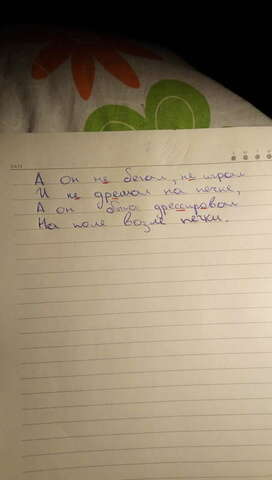 А он не бегал, не играл
И не дремал на печке,
А он был дрессировал
На поле возле печки.